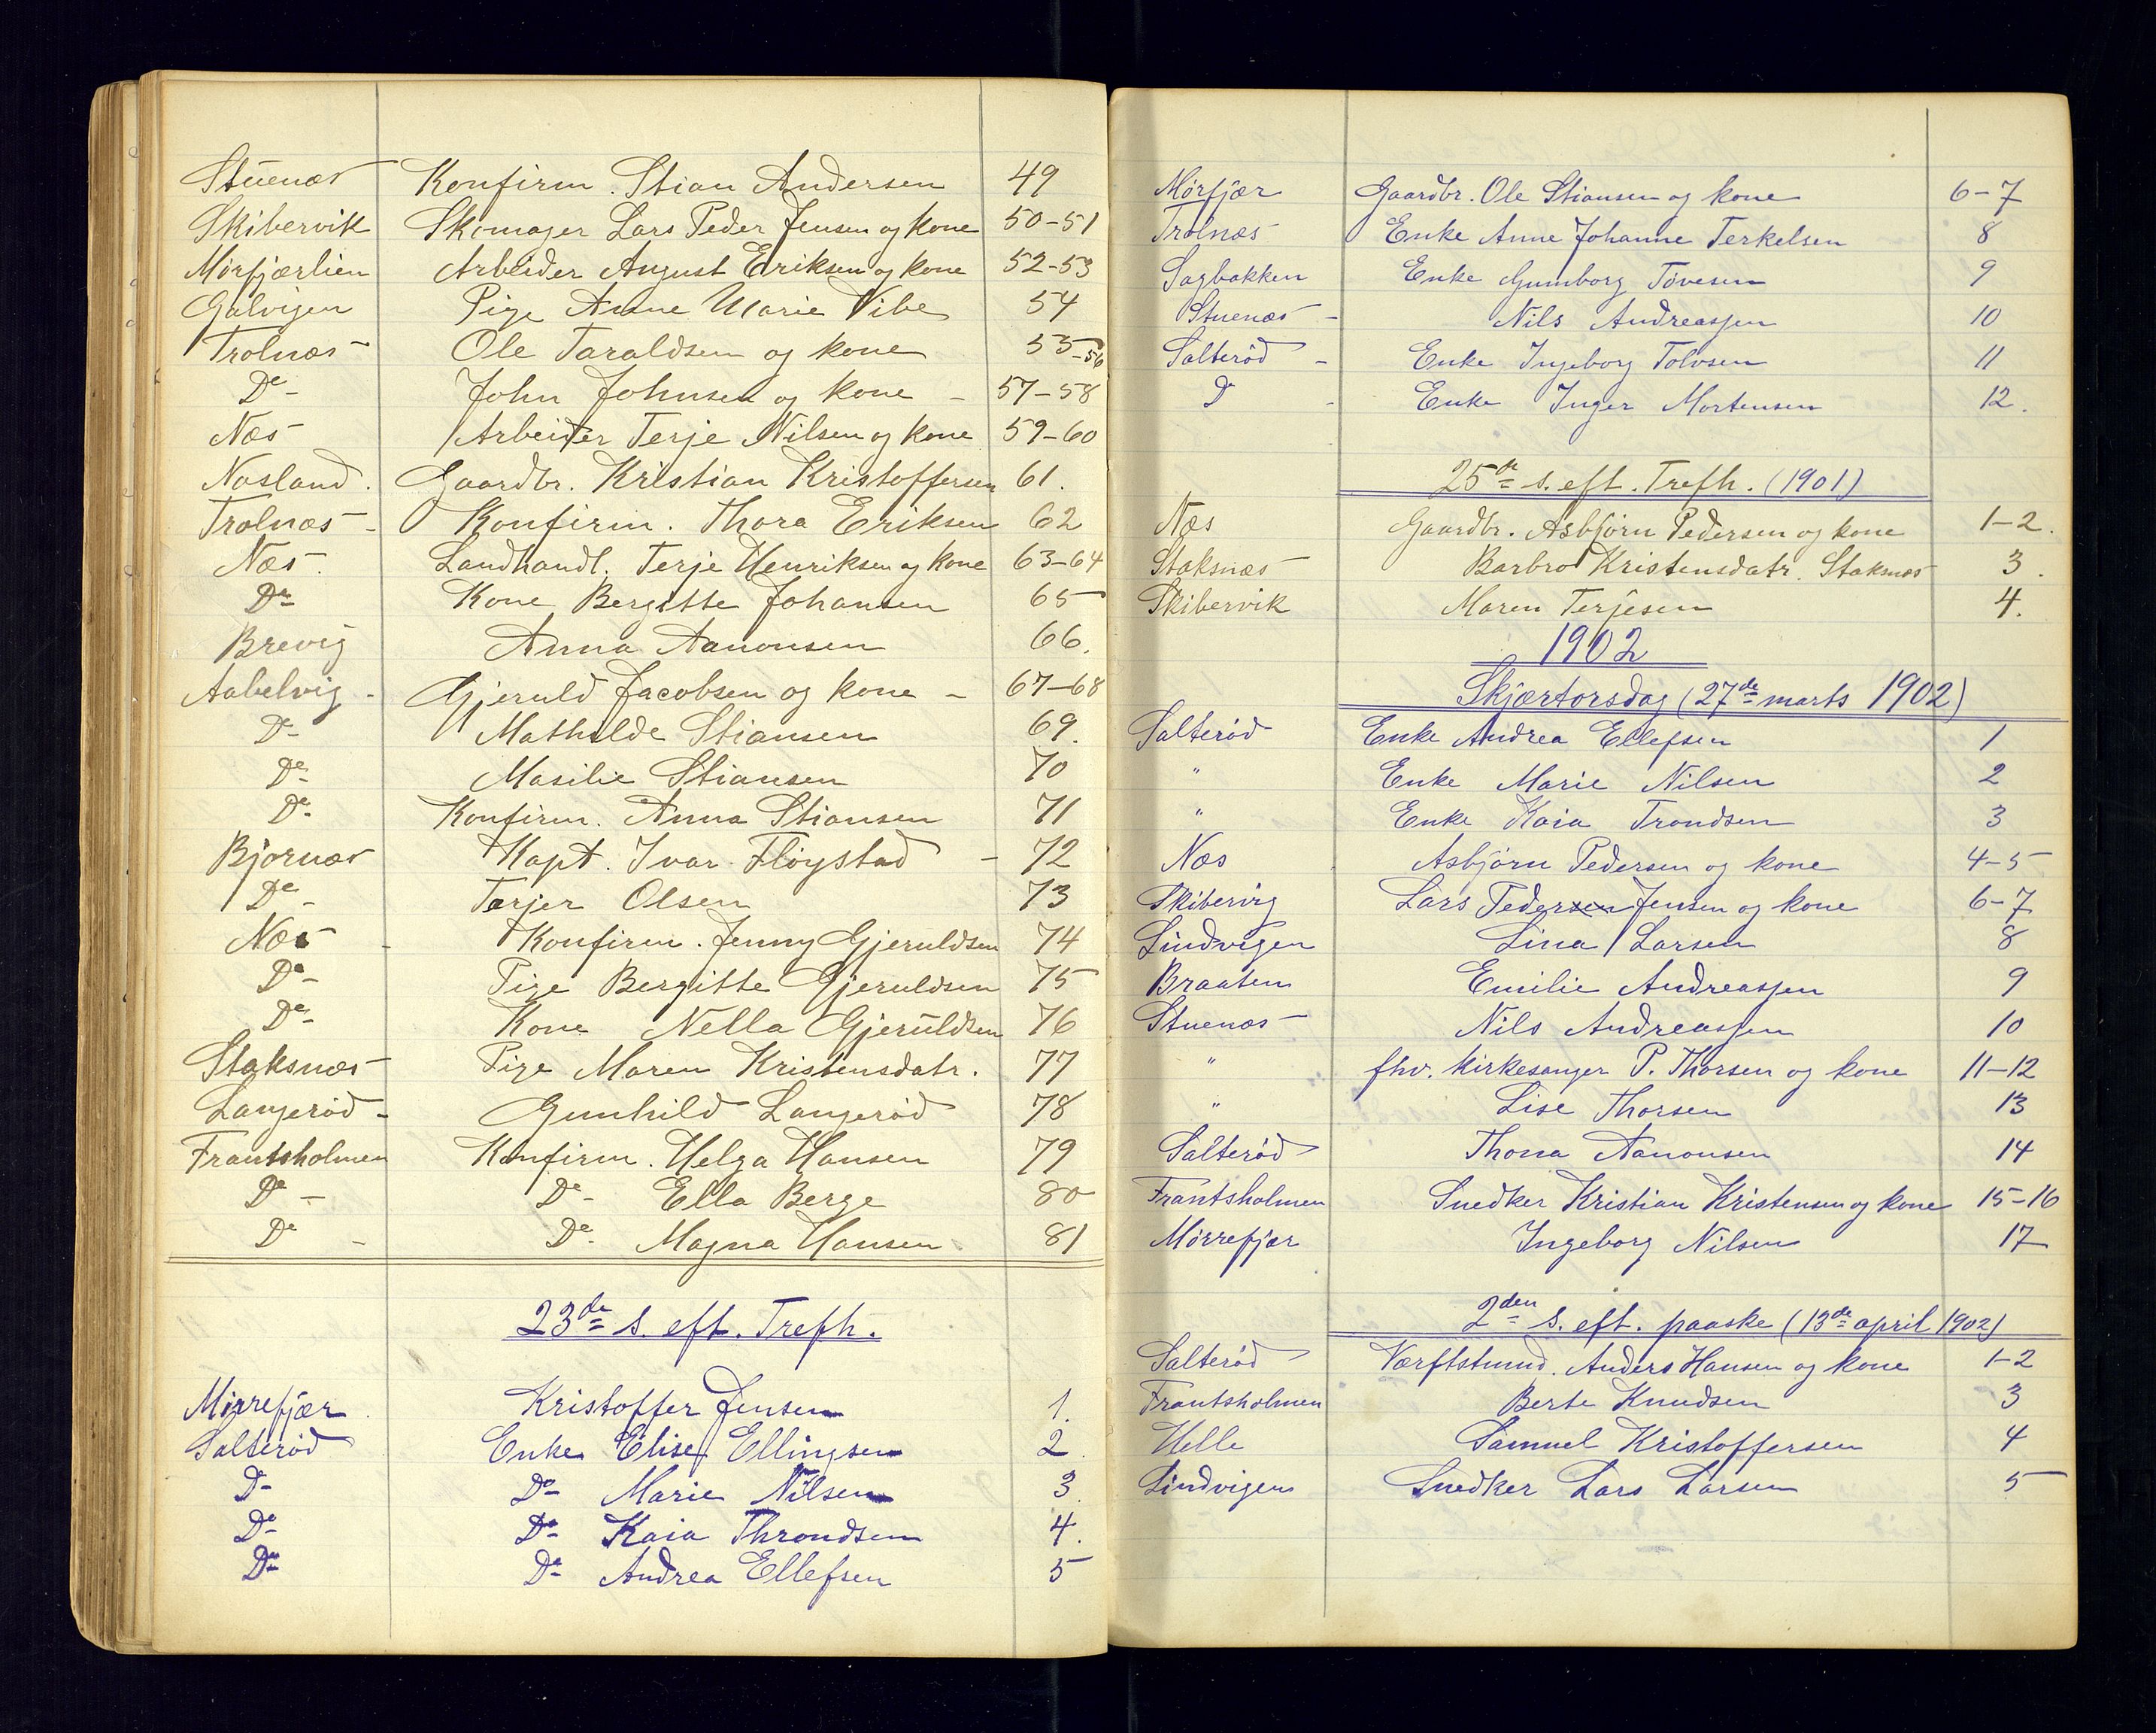 Stuenæs Konfirm. Stian Andersen 49
Skibervik Skomager Lars Peder Jensen og kone 50-51
Mörfjærlien Arbeider August Eriksen og kone 52-53
Galvigen Pige Anne Marie Vibe 54
Trolnæs Ole Taraldsen og kone 55-56
Do- John Johnsen og kone - 57-58
Næs Arbeider Terje Nilsen og kone 59-60
Nasland. Gaardbr. Kristian Kristoffersen 61.
Trolnæs- Konfirm. Thora Eriksen 62
Næs. Landhandl. Terje Henriksen og kone 63-64
Do Kone Bergitte Johansen 65
Brevig Anna Aanonsen 66.
Aabelvig - Gjeruld Jacobsen og kone - 67-68
Do- Mathilde Stiansen 69.
Do- Masilie Stiansen 70
Do- Konfirm. Anna Stiansen 71
Bjornæs Kapt. Ivar Flöystad - 72
Do- Terjer Olsen 73
Næs - Konfirm. Jenny Gjeruldsen 74
Do- Pige Bergitte Gjeruldsen 75
Do- Kone Nella Gjeruldsen 76
Staksnæs Pige Maren Kristensdatr. 77
Langerød- Gunhild Langerød 78
Frantsholmen Konfirm. Helga Hansen 79
Do- Do- Ella Berge 80
Do - Do- Magna Hansen 81
23de s. eft. Trefh.
Mörrefjær Kristoffer Jensen 1.
Salterød Enke Elise Ellingsen 2.
Do- Do- Marie Nilsen 3
Do- Do- Kaia Throndsen 4.
Do- Do- Andrea Ellefsen 5
Mörfjær Gaardbr. Ole Stiansen og kone 6-7
Trolnæs Enke Anne Johanne Terkelsen 8
Sagbakken Enke Gunborg Tovesen 9
Stuenæs - Nils Andreassen 10
Salteröd - Enke Ingeborg Tolvsen 11
Do - Enke Inger Mortensen 12.
25de s. eft. Trefh. (1901)
Næs Gaardbr. Asbjörn Pedersen og kone 1-2.
Staksnæs Barbro Kristensdatr. Staksnæs 3.
Skibervik Maren Terjesen 4.
1902
Skjærtorsdag (27de marts 1902)
Salterød Enke Andrea Ellefsen 1
" Enke Marie Nilsen 2
" Enke Kaia Trondsen 3
Næs Asbjörn Pedersen og kone 4-5
Skibervig Lars Pedersen Jensen og kone 6-7
Lindvigen Lina Larsen 8
Braaten Emilie Andreassen 9
Stuenæs Nils Andreassen 10
" fhv. kirkesanger P. Thorsen og kone 11-12
" Lise Thorsen 13
Salterød Thona Aanonsen 14
Frantsholmen Snedker Kristian Kristensen og kone 15-16
Mörrefjær Ingeborg Nilsen 17
2den s. eft. paaske (13de april 1902)
Salterød Værftstømd. Anders Hansen og kone 1-2
Frantsholmen Berte Knudsen 3
Helle Samuel Kristoffersen 4
Lindvigen Snedker Lars Larsen 5